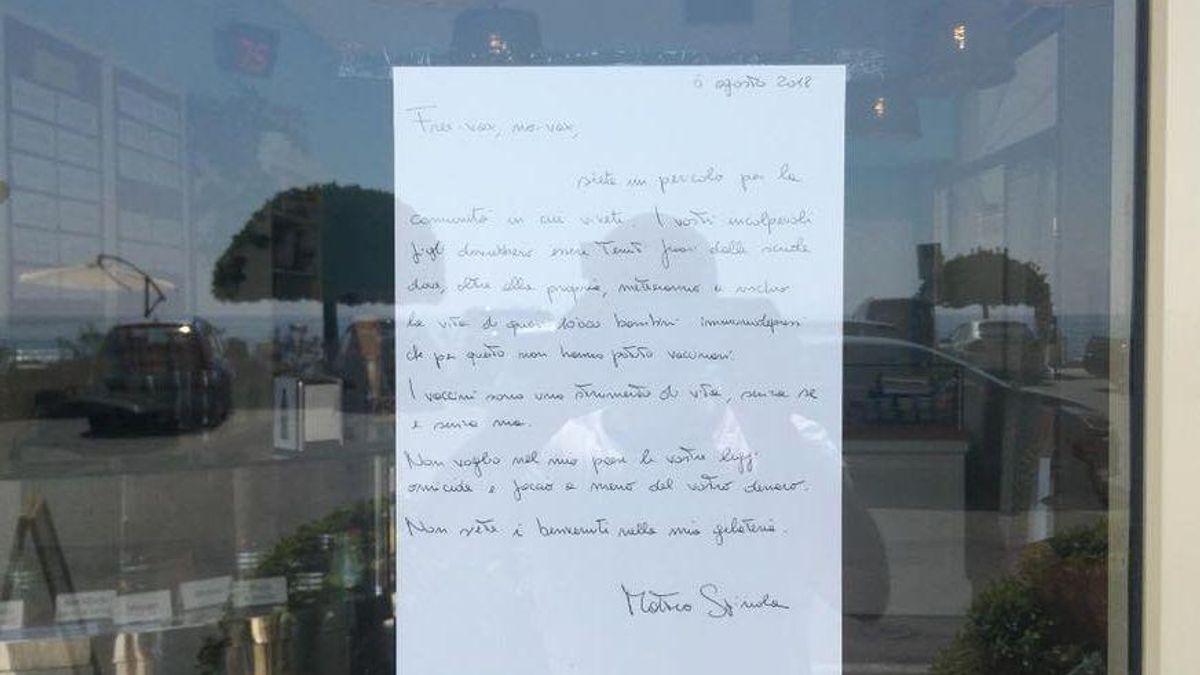 6 agosto 2018
Free-vax, no-vax,
siete un pericolo per la
comunità in cui vivete. I vostri incolpevoli
figli dovrebbero essere tenuti fuori dalle scuole
dove, oltre alla propria, metteranno a rischio
la vita di quei bambini immunodepressi
che per questo non hanno potuto vaccinarsi.
I vaccini sono uno strumento di vita, senza se
e senza ma.
Non voglio nel mio paese le vostre leggi
omicide e faccio a meno del vostro denaro.
Non siete i benvenuti nella mia gelateria.
Matteo Spinola
75